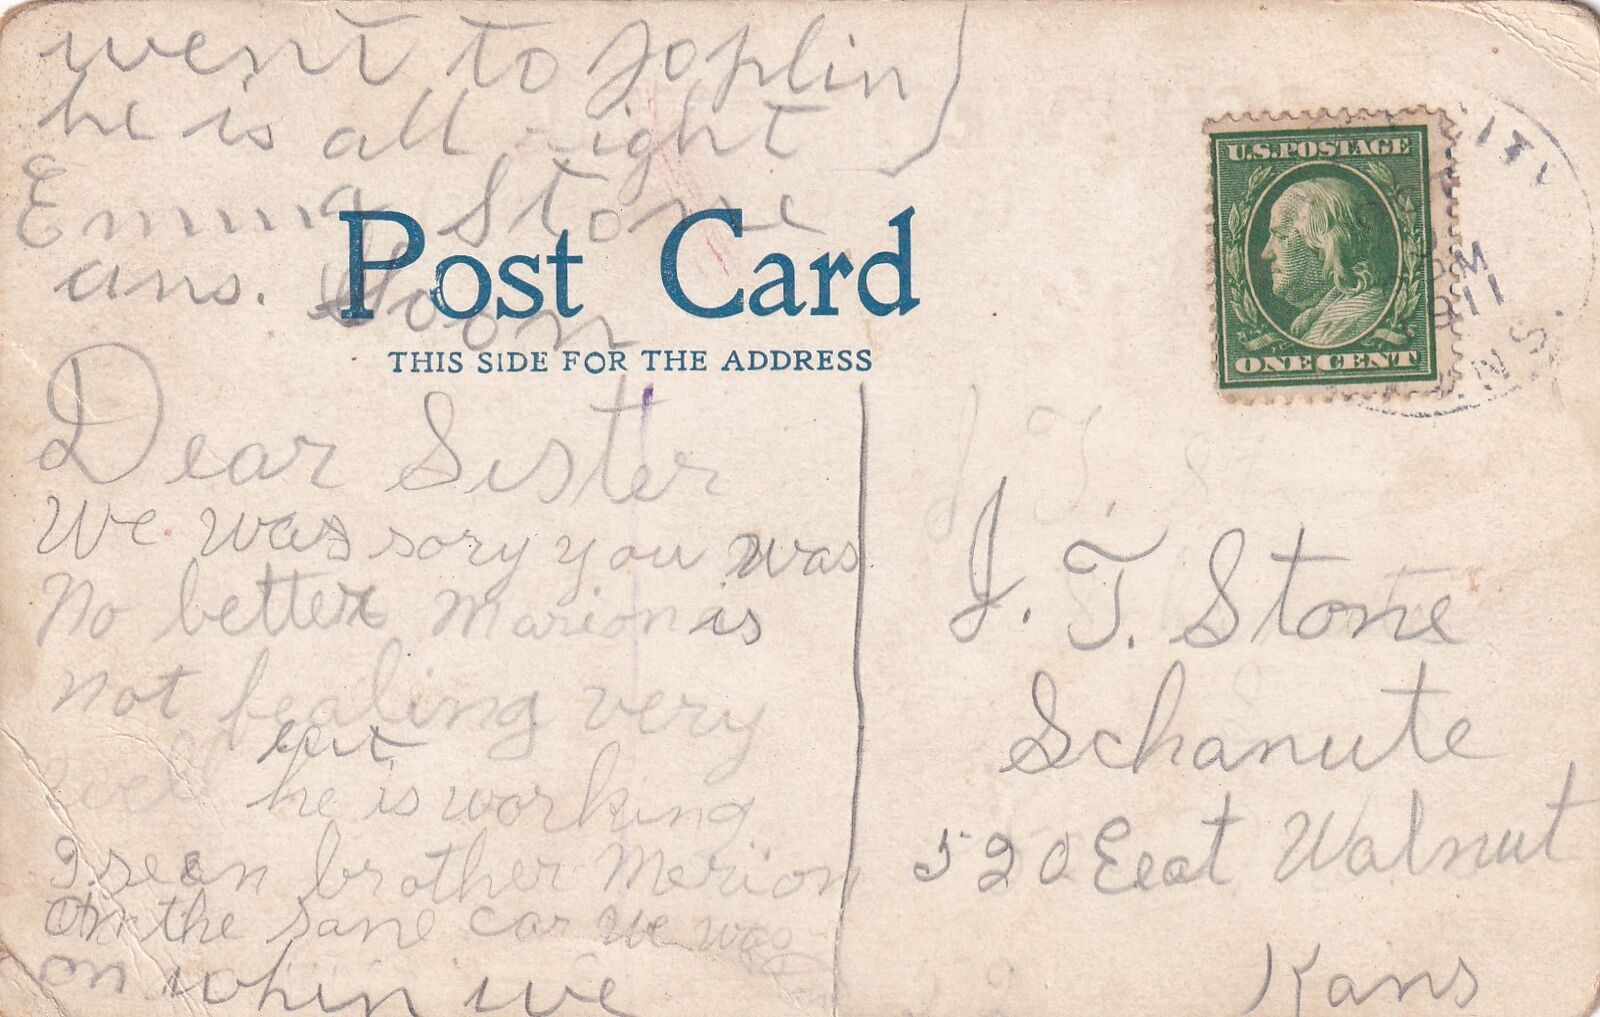 went to Joplin
he is all right
Emma Stone
ans. Soon
Post Card
THIS SIDE FOR THE ADDRESS
Dear Sister
We was sory you was
No better Marion is
not fealing very
well but he is working
I seen brother Merion
on the sane car we was
on whin we
U.S. POSTAGE
ONE CENT
CITY
PM
11
NS.
J. T. Stone
Schanute
520 Eeat Walnut
Kans